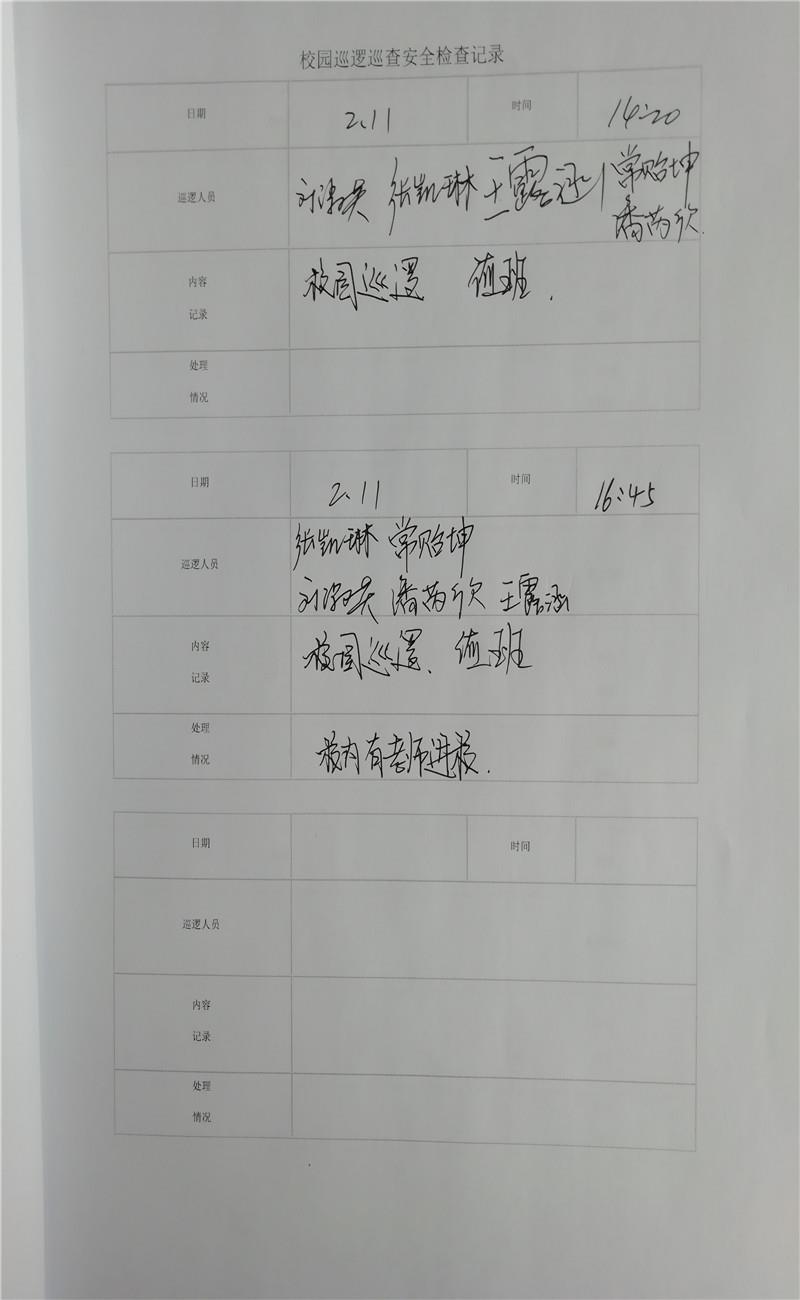 校园巡逻巡查安全检查记录
日期 2.11 时间 14:20
巡逻人员 张凯琳 王露涵 常贻坤
潘芮欣
内容 校园巡逻 值班.
记录
处理
情况
日期 2.11 时间 16:45
张凯琳 常贻坤
巡逻人员
潘芮欣 王露涵
内容 校园巡逻、值班
记录
处理
情况 校内有老师进校.
日期 时间
巡逻人员
内容
记录
处理
情况